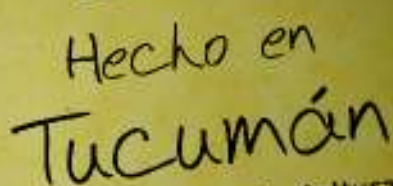 Hecho en
Tucumán